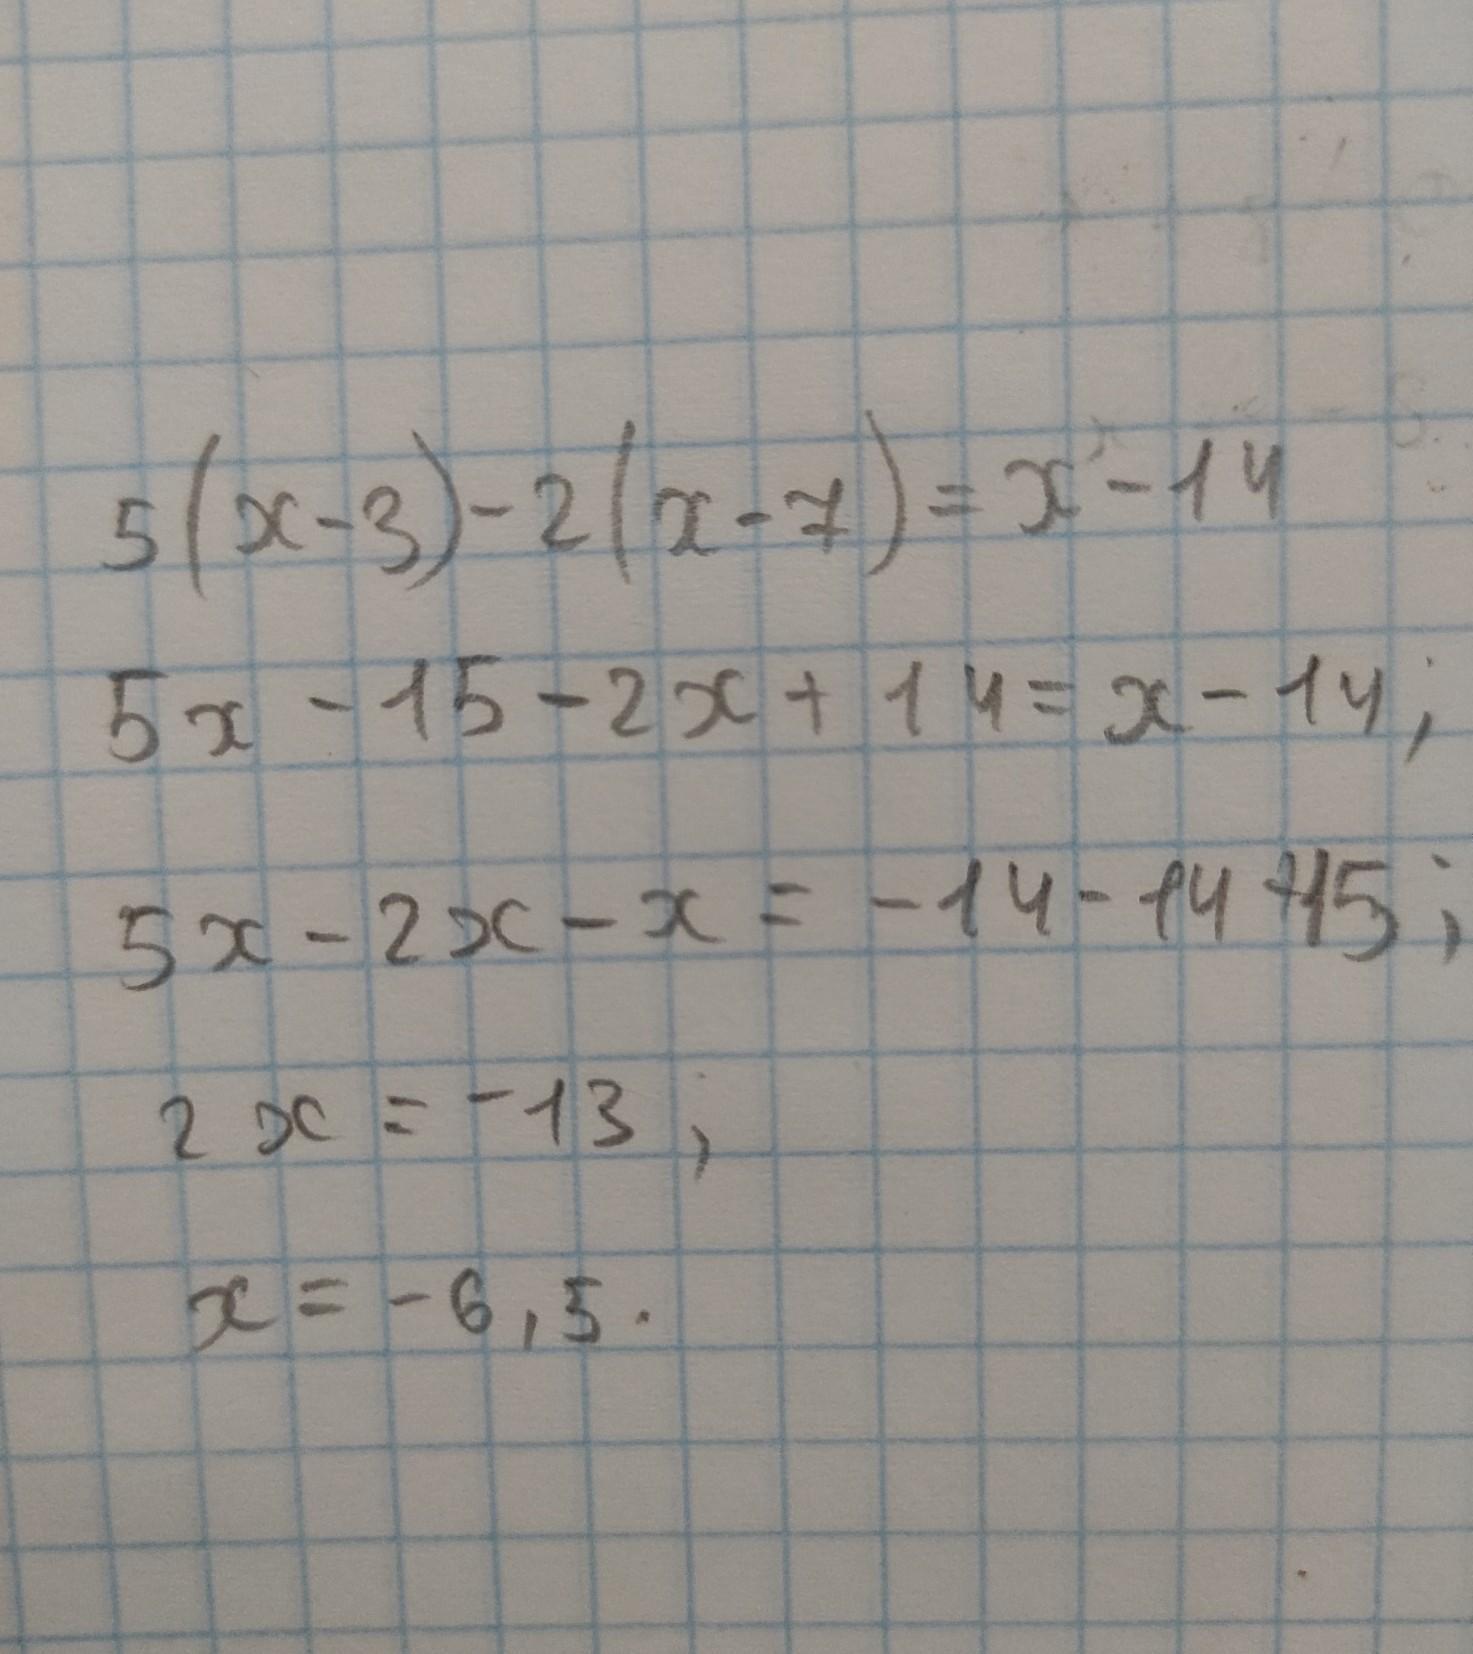 5(x-3)-2(x-7)=x-14
5x-15-2x+14=x-14;
5x-2x-x=-14-14+15;
2x=-13;
x=-6,5.